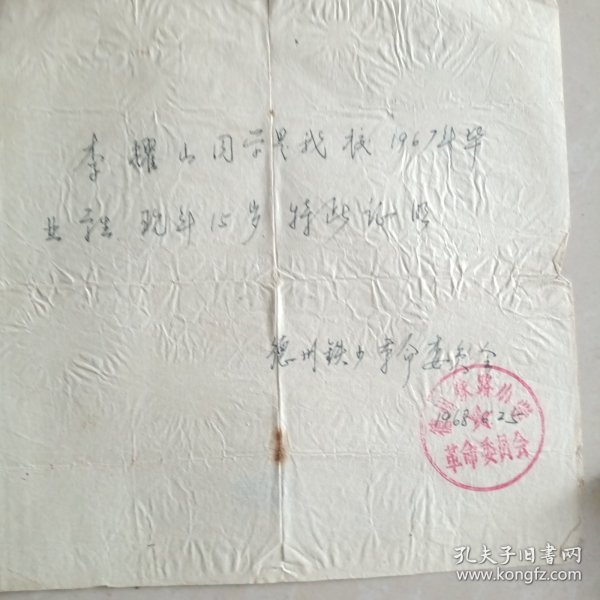 李耀山同学是我校1967年毕
业学生 现年15岁 特此证明
德州铁小革命委员会
1968.6.25
铁路小学
革命委员会
孔夫子旧书网
www.kongfz.com